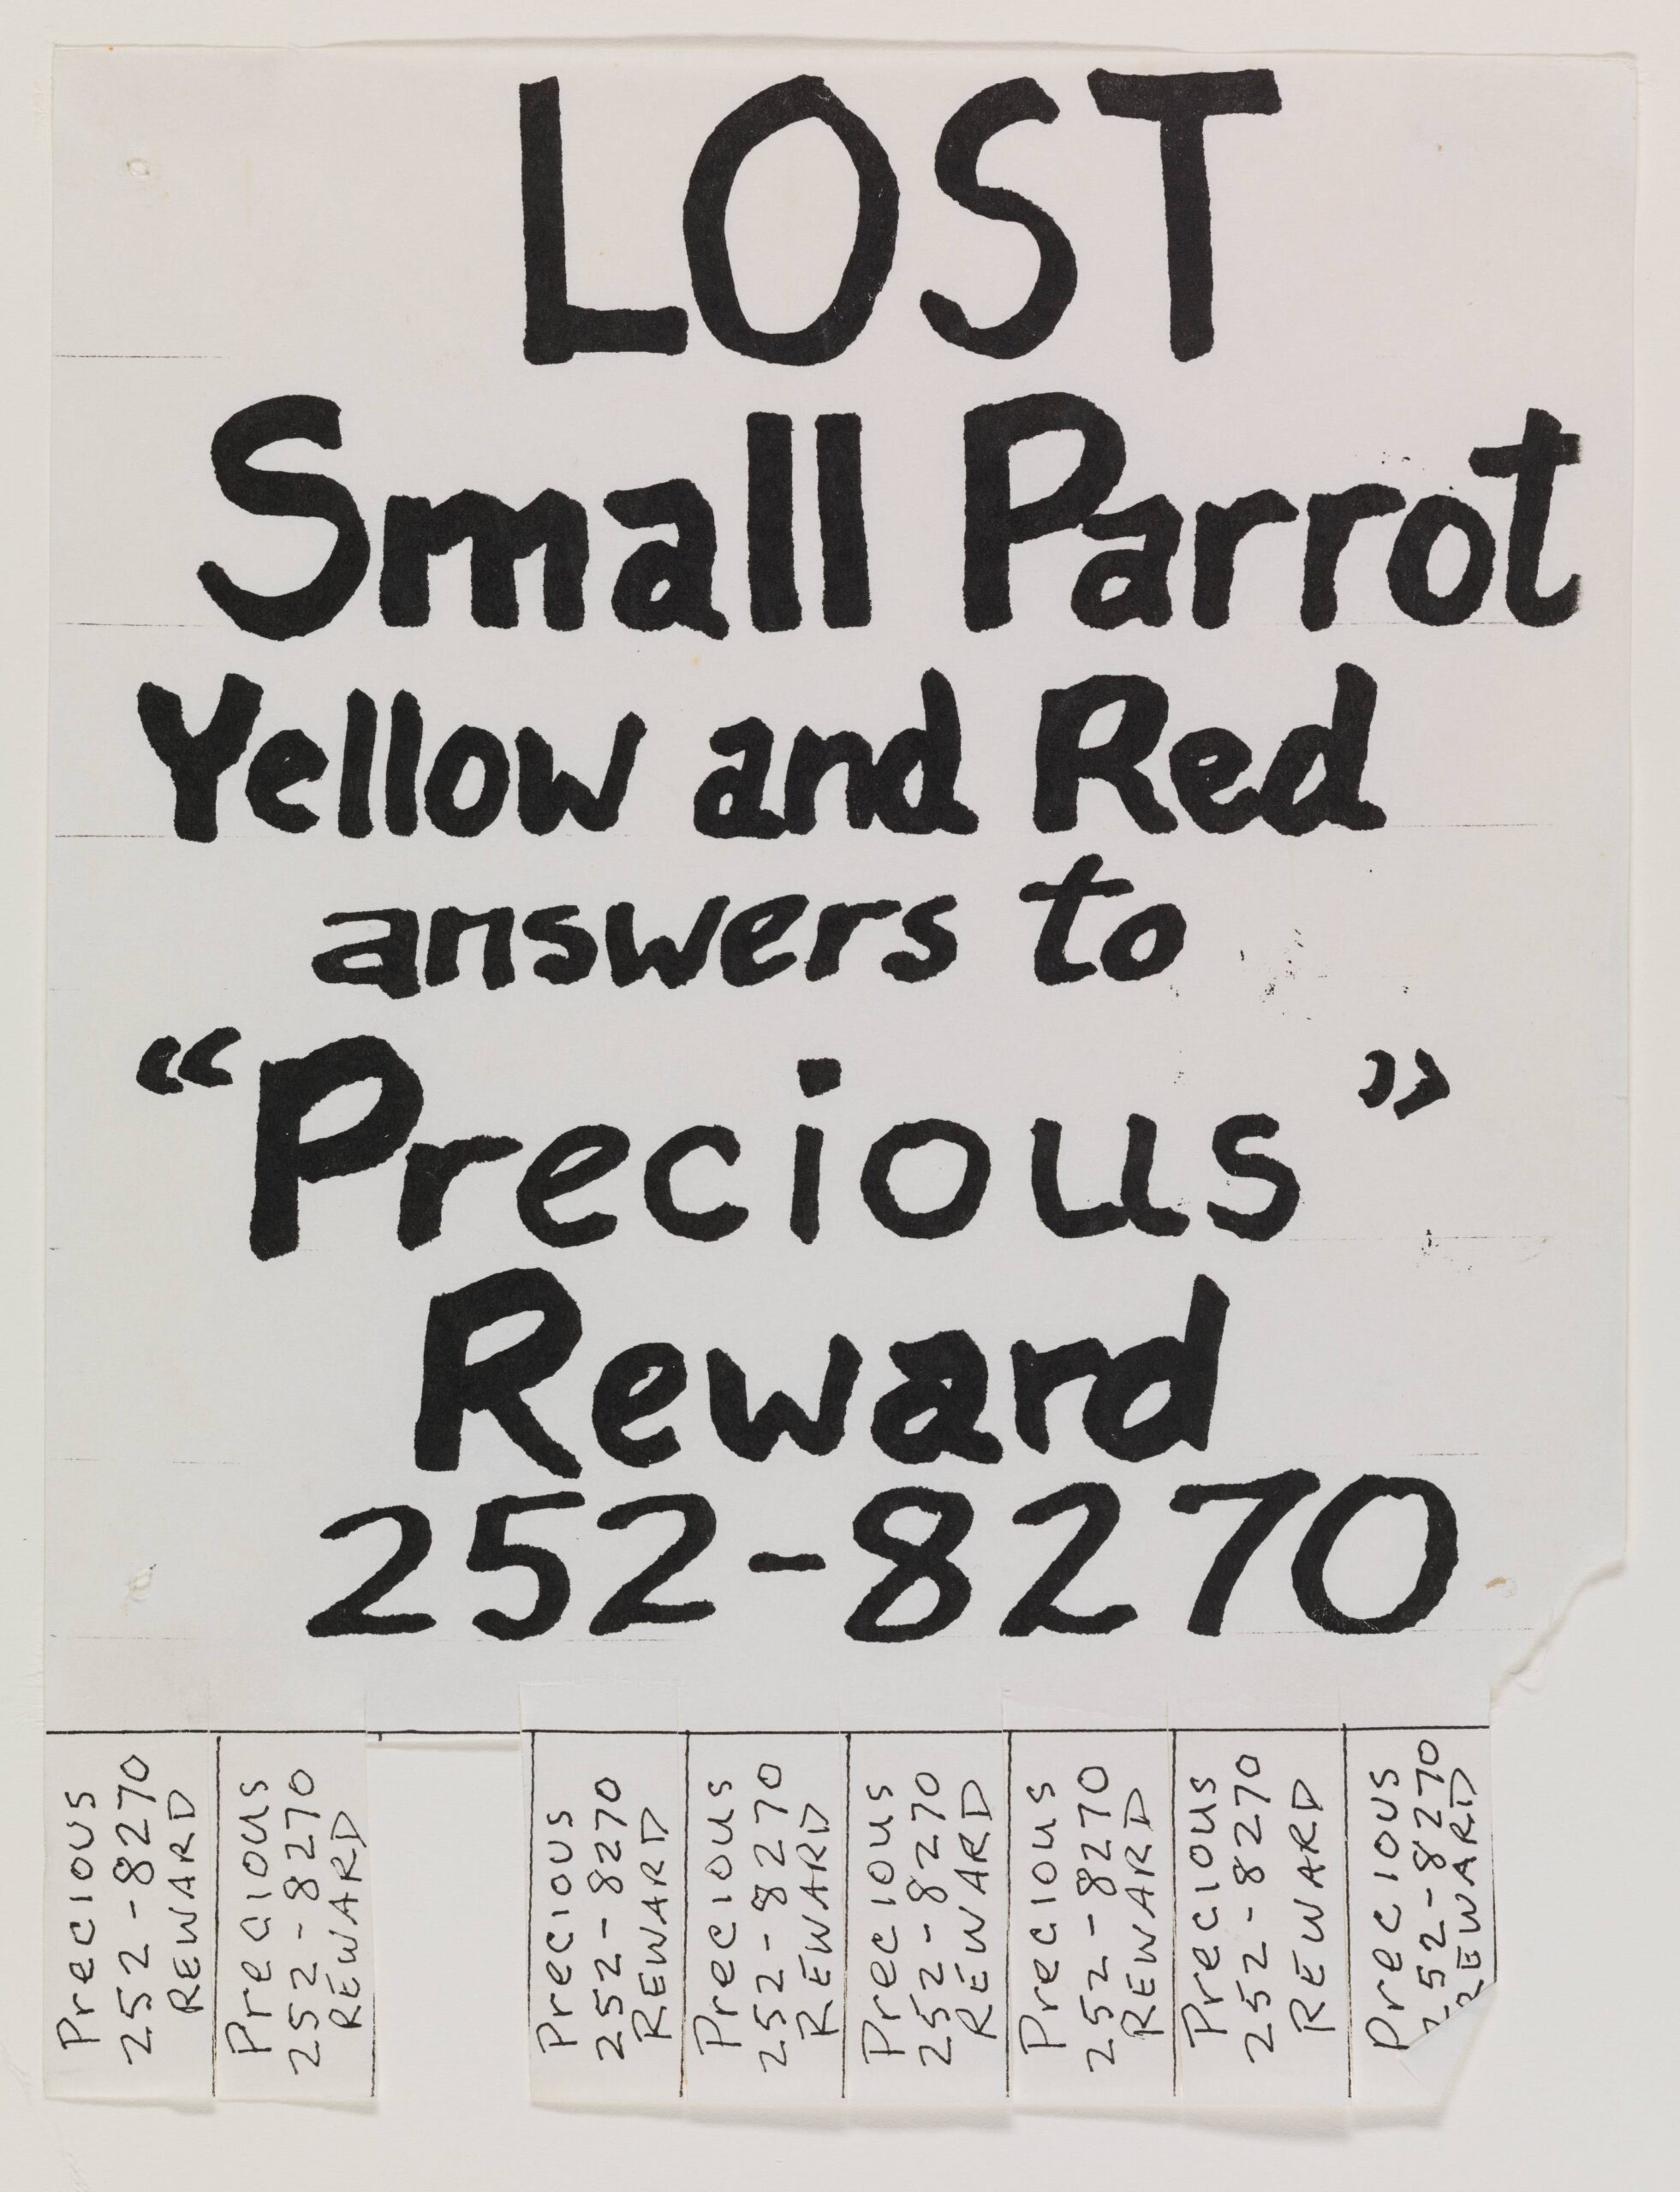 LOST
Small Parrot
Yellow and Red
answers to
“Precious”
Reward
252-8270
Precious
252-8270
REWARD
Precious
252-8270
REWARD
Precious
252-8270
REWARD
Precious
252-8270
REWARD
Precious
252-8270
REWARD
Precious
252-8270
REWARD
Precious
252-8270
REWARD
Precious
252-8270
REWARD